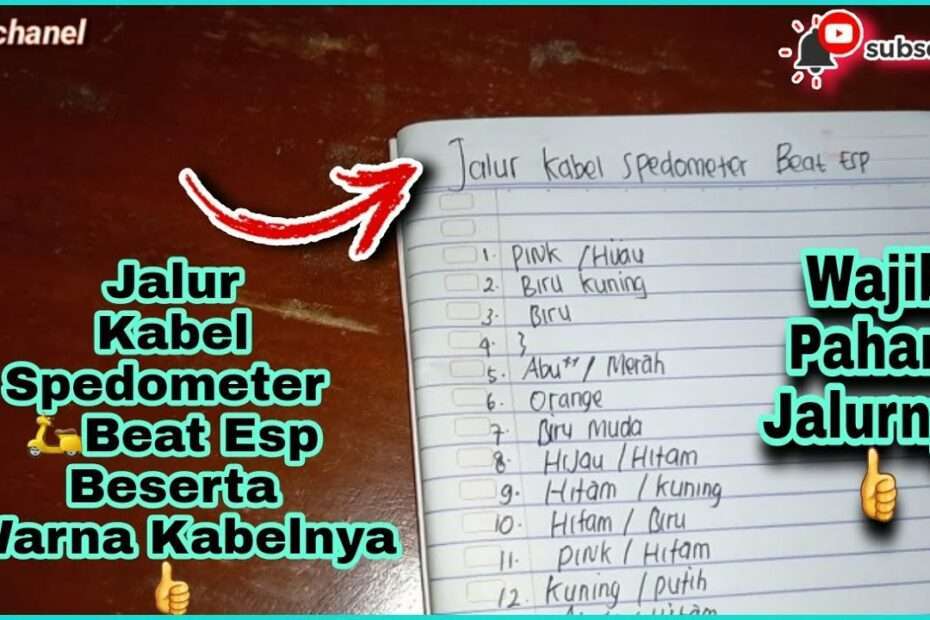 chanel
subsc
Jalur Kabel Spedometer Beat ESP
1. PINK / Hijau
2. Biru kuning
3. Biru
4. }
5. Abu" / Merah
6. Orange
7. Biru Muda
8. HiJau / Hitam
9. Hitam / kuning
10. Hitam / Biru
11. PINK / Hitam
12. Kuning / putih
Jalur
Kabel
Spedometer
Beat Esp
Beserta
Warna Kabelnya
Wajib
Paham
Jalurny